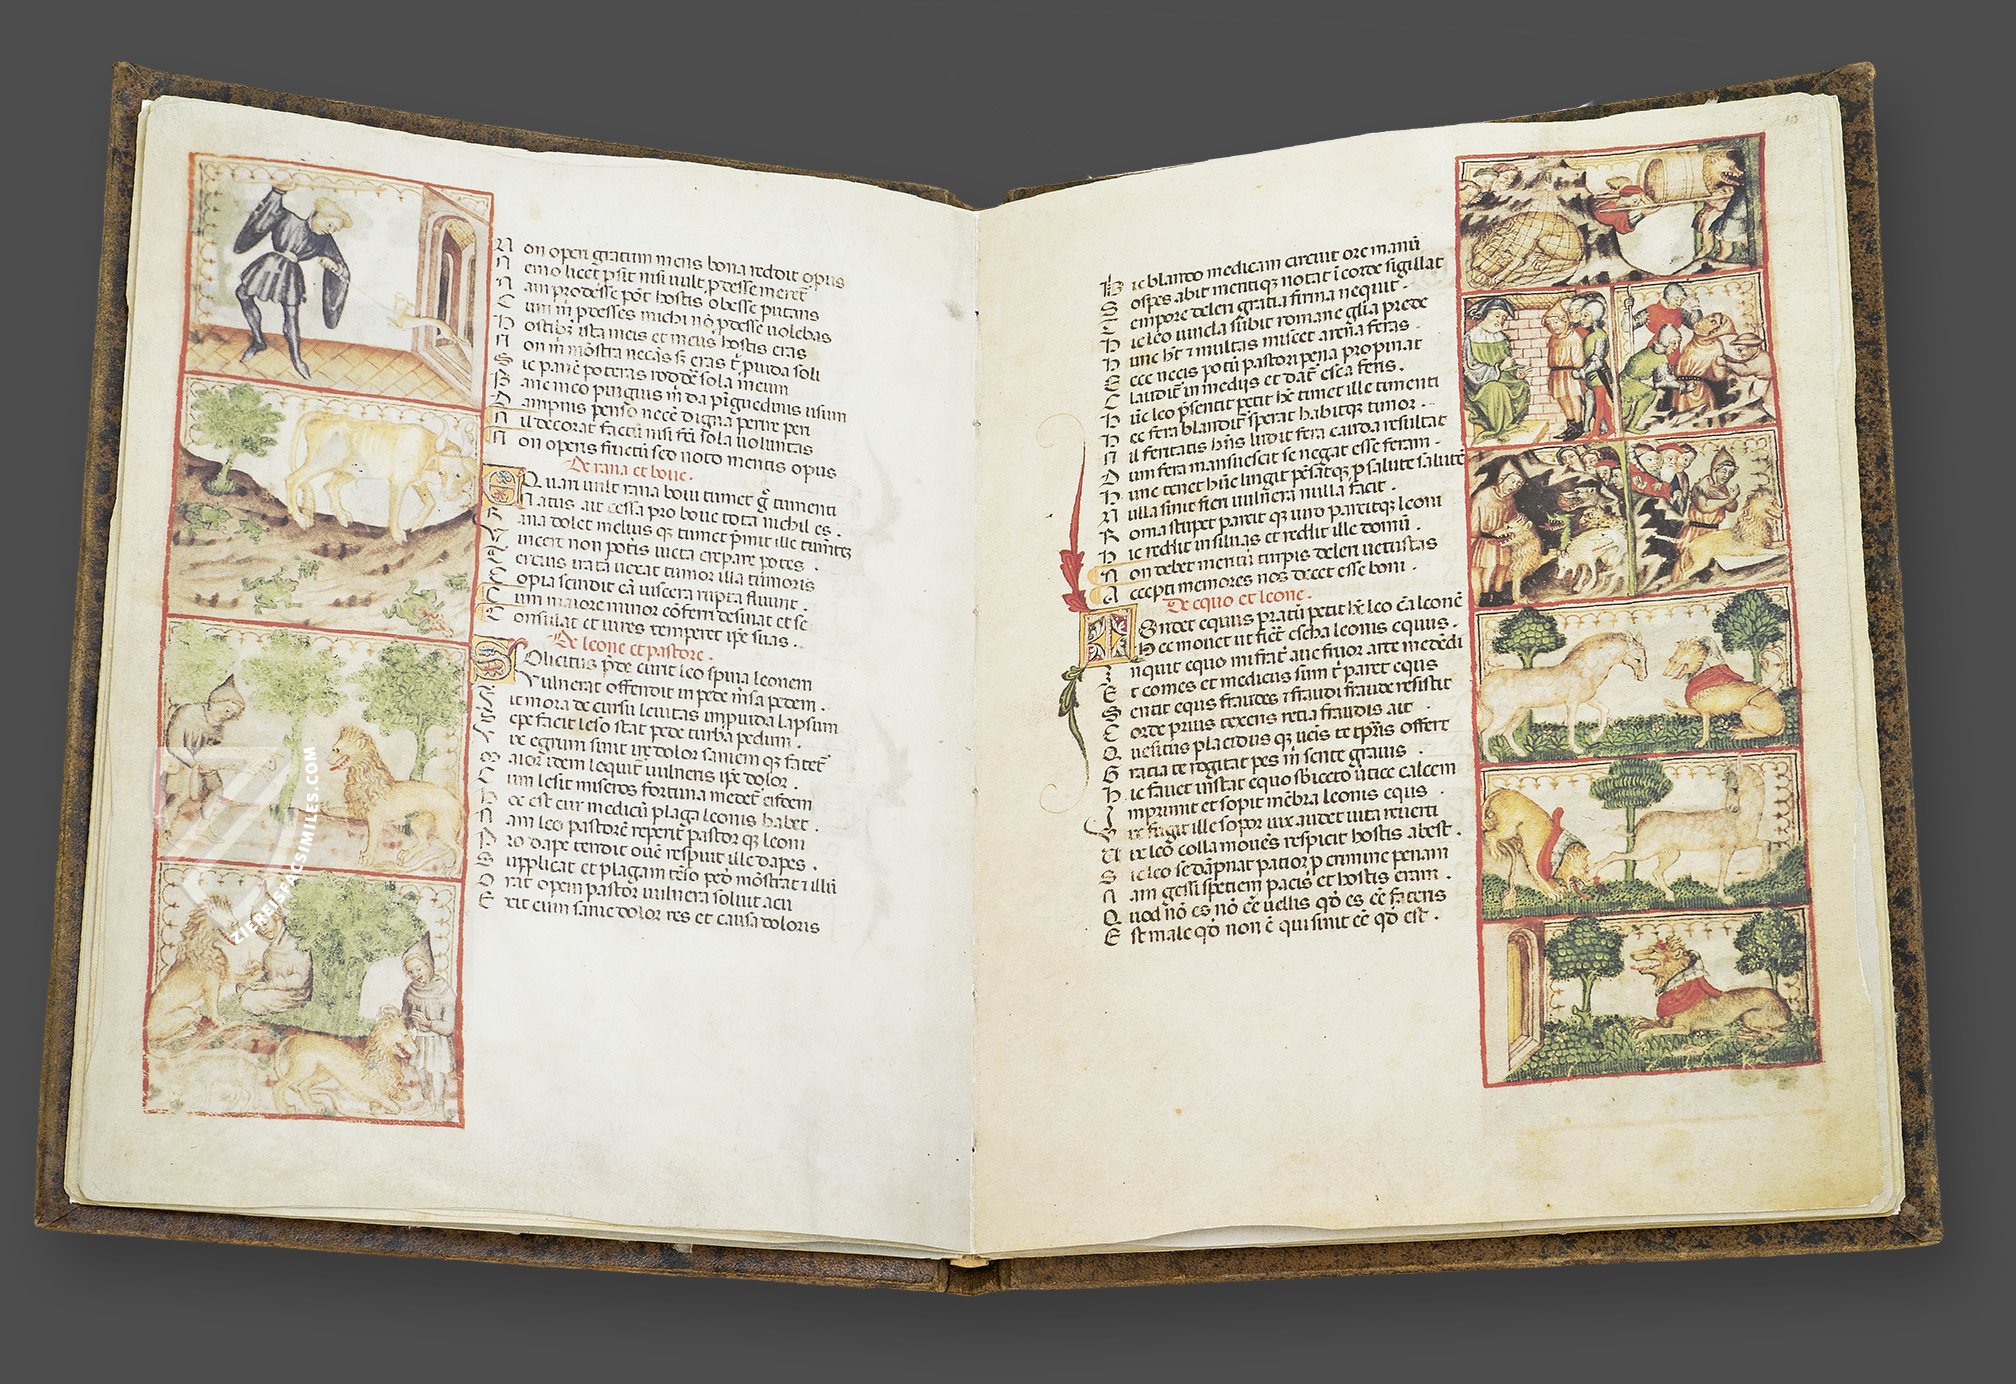 N on operi gratum mens bona reddit opus
N emo licet p̄sit nisi vult p̱desse meret᷑
N am prodesse pōt hostis obesse putans
C um m̄ p̱desses michi nō p̱desse uolebas
H ostibꝫ ista meis et meus hostis eras
N on m̄ mōstra necās sꝫ eras t̄ p̄uida soli
S ic panē poteras rodē sola meum
P ane meo pinguis m̄ da pīguedinis usum
D ampnis penso necē digna perire peri
N il decorat factū nisi fēi sola uoluntas
N on operis fructū sed noto mentis opus
De rana et boue.
D um uult rana boui tumet
N atus ait cessa pro boue tota nichil es.
R ana dolet melius qꝫ tumet p̄mit ille tum̄tē
V incere non potis uicta crepare potes.
T ercius irata uexat tumor illa tumoris
C opia scindit eā uiscera rupta fluunt.
C um maiore minor cōferri desinat et se
C onsulat et uires temperet ip̄e suas.
De leone et pastore.
S ollicitus p̄de currit leo spina leonem
V ulnerat offendit in pede m̄sa pedem.
F it mora de cursu leuitas impuida lapsum
S epe facit leso stat pede turba pedum.
V ix egrum sinit ire dolor saniem qꝫ fatet᷑
M aior idem loquit᷑ uulneris ip̄e dolor.
C um lesit miseros fortuna medet᷑ eisdem
H ec est cur medicū plaga leonis habet.
N am leo pastorē reperit pastor qꝫ leoni
P ro dape tendit ouē respuit ille dapes.
S upplicat et plagam tēso pede mōstrat ⁊ illū
O rat opem pastor uulnera soluit acu
E xit cum sanie dolor res et causa doloris
10
H ic blando medicam circuit ore manū
S ospes abit meritiqꝫ notat ī corde sigillat
T empore deleri gratia firma nequit.
H ic leo uincla subit romane gl̄ia prede
H unc hēt ⁊ multas miscet arena feras.
E cce necis potū pastori pena propinat
C laudit᷑ in medijs et dat᷑ esca feris.
H ūc leo p̄sentit petit hē timet ille timenti
H ec fera blandit᷑ sperat habitqꝫ timor.
N il feritatis hñs ludit fera cauda resultat
D um fera mansuescit se negat esse feram.
H unc tenet hūc lingit pēsatqꝫ p̱ salute salutē
N ulla sinit fieri uulnera nulla facit.
R oma stupet parcit qꝫ uiro parcitqꝫ leoni
H ic redit in siluas et redit ille domū.
N on debet meritū turpis deleri uetustas
A ccepti memores nos decet esse boni.
De equo et leone.
T ondet equus pratū petit hē leo cā leonē
H ec mouet ut fiet᷑ escha leonis equus.
I nquit equo mi frat᷑ aue fruor arte medēdi
E t comes et medicus sum t̄ paret equs
S entit equs fraudes ⁊ fraudi fraude resistit
C orde prius texens retia fraudis ait
Q uesitus placidus qꝫ ueis te tp̄ris offert
G racia te rogitat pes m̄ sente grauis.
H ic fauet instat equo sbiecto ūtice calcem
I mprimit et sopit mēbra leonis equs.
V ix fugit ille sopor uix audet uita reuerti
V ix leo colla mouēs respicit hostis abest.
S ic leo se dāpnat patior p̱ crimine penam
N am gessi spetiem pacis et hostis eram.
Q uod nō es nō eē uellis qd̄ es eē fateris
E st male qd̄ non ē qui sinit eē qd̄ est.
ZIEREISFACSIMILES.COM